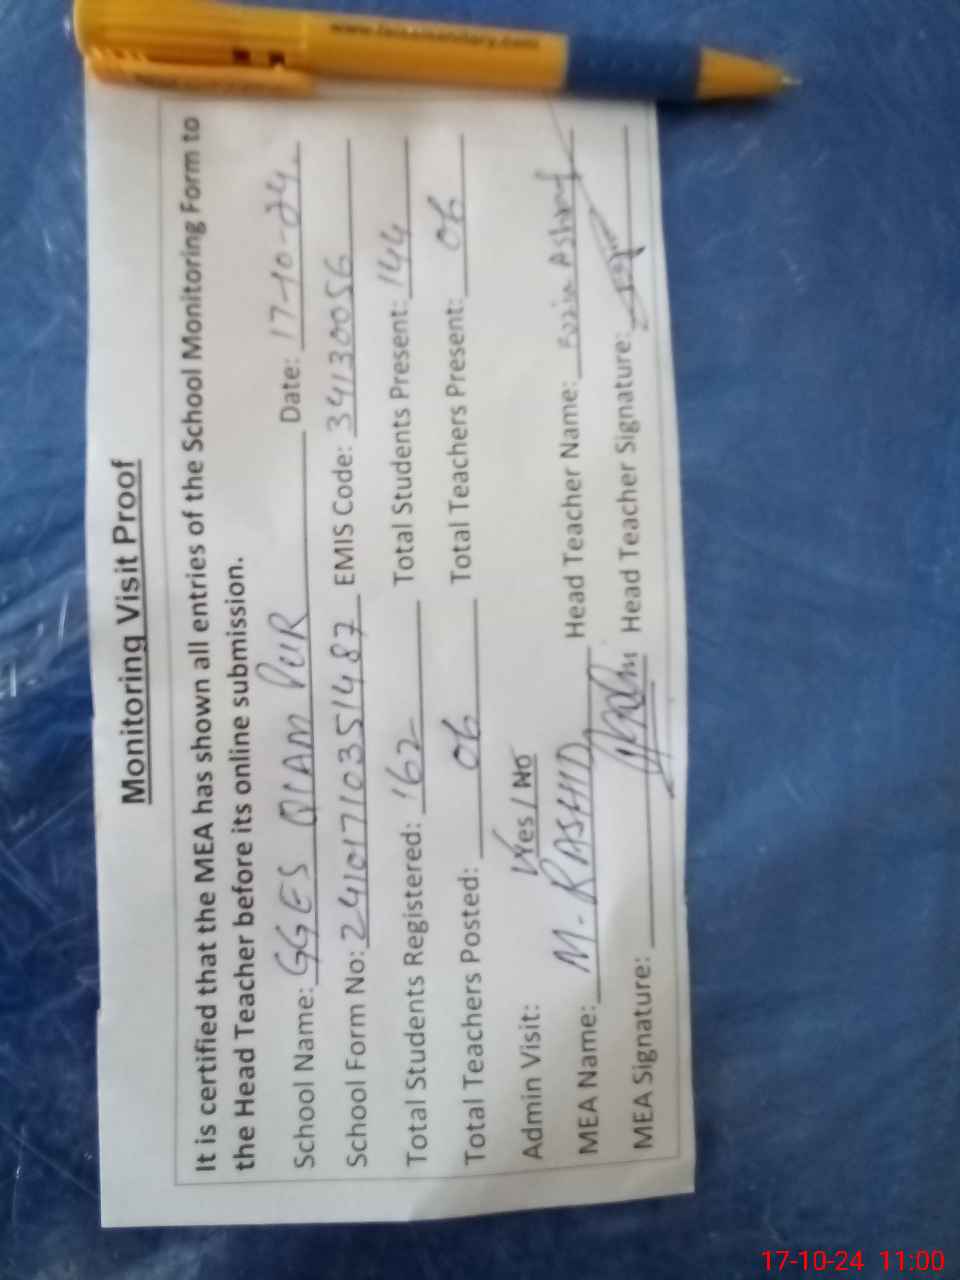 Monitoring Visit Proof
It is certified that the MEA has shown all entries of the School Monitoring Form to
the Head Teacher before its online submission.
School Name: GGES QIAM PUR Date: 17-10-24
School Form No: 24101710351487 EMIS Code: 34130056
Total Students Registered: 162 Total Students Present: 144
Total Teachers Posted: 06 Total Teachers Present: 06
Admin Visit: Yes / No
MEA Name: M. RASHID Head Teacher Name: Fozia Ashraf
MEA Signature: Head Teacher Signature:
17-10-24 11:00